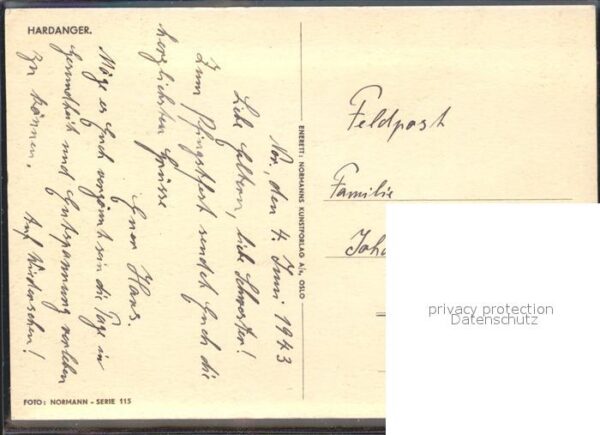 HARDANGER.
Nor, den 4. Juni 1943
Liebe Eltern, liebe Schwester!
Zum Pfingstfest sendet Euch die
herzlichsten Grüsse
Euer Hans.
Möge es Euch vergönnt sein die Tage in
Gesundheit und Entspannung verleben
zu können.
Auf Wiedersehen!
ENERETT: NORMANNS KUNSTFORLAG A/S, OSLO
Feldpost
Familie
Joha
privacy protection
Datenschutz
FOTO: NORMANN - SERIE 115